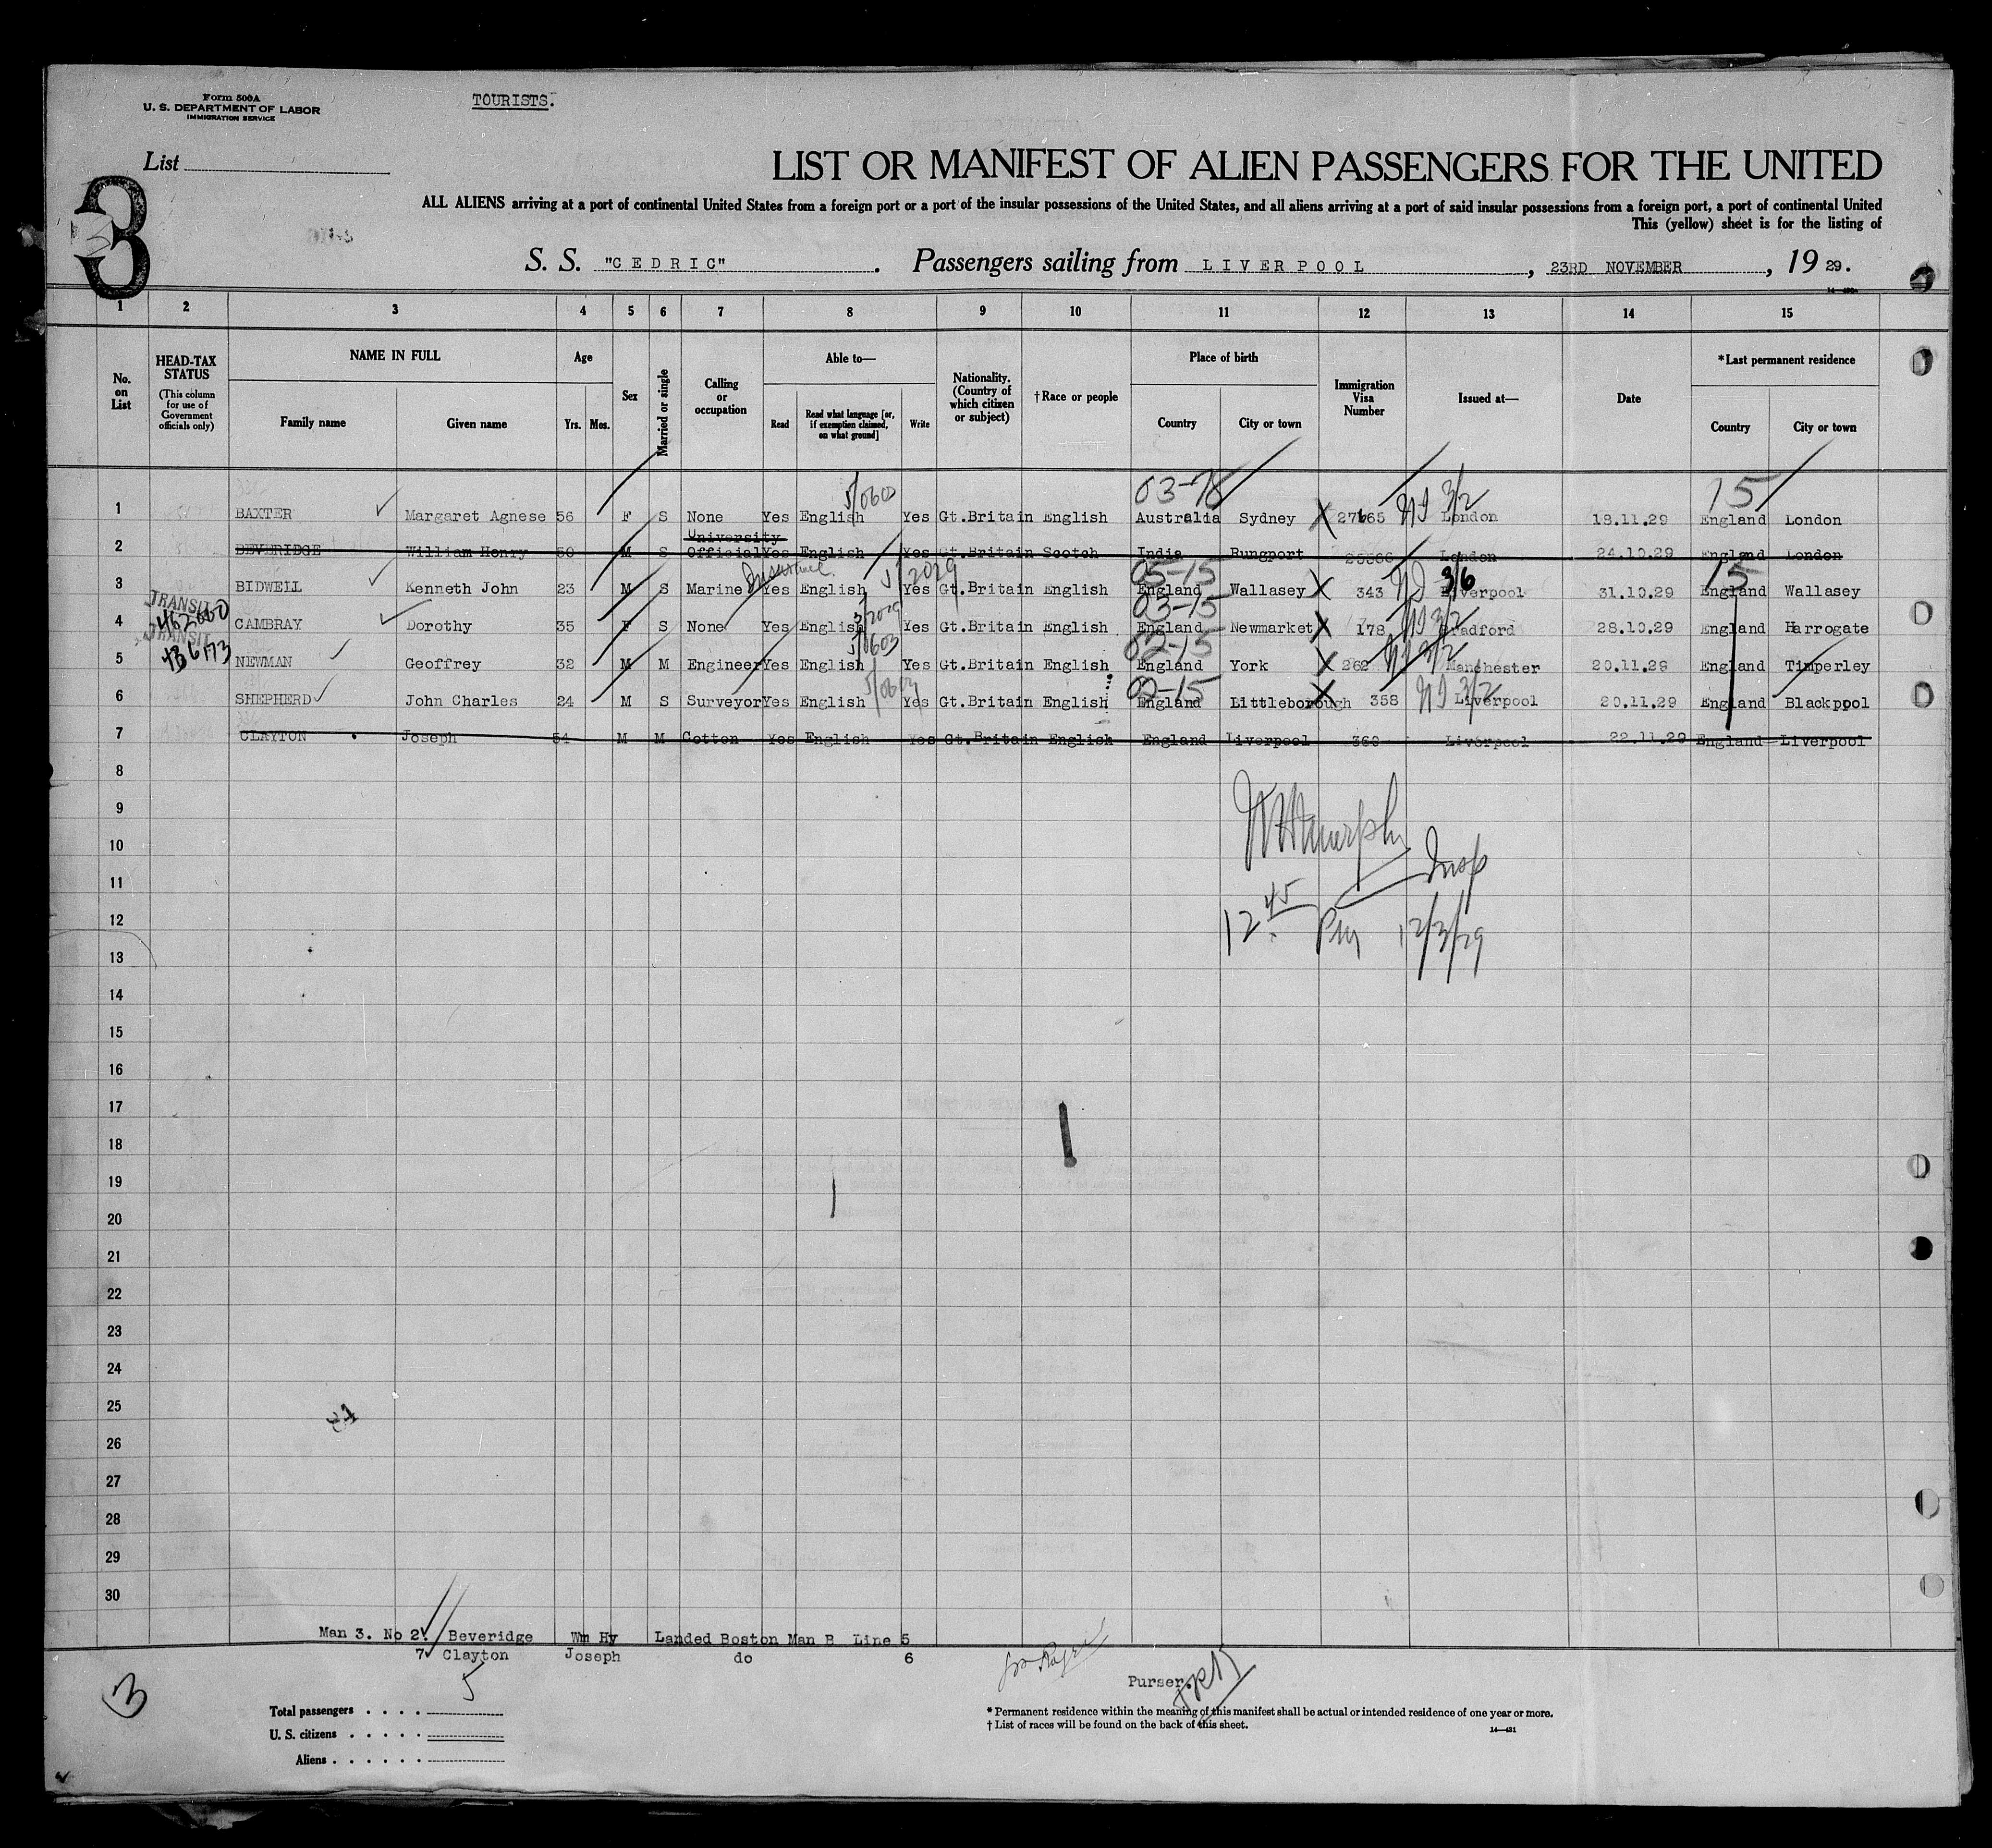 Form 500A
U. S. DEPARTMENT OF LABOR
IMMIGRATION SERVICE
TOURISTS.
List
3
LIST OR MANIFEST OF ALIEN PASSENGERS FOR THE UNITED
ALL ALIENS arriving at a port of continental United States from a foreign port or a port of the insular possessions of the United States, and all aliens arriving at a port of said insular possessions from a foreign port, a port of continental United
This (yellow) sheet is for the listing of
S. S. "CEDRIC" . Passengers sailing from LIVERPOOL , 23RD NOVEMBER , 19 29.
1 2 3 4 5 6 7 8 9 10 11 12 13 14 15
No. on List
HEAD-TAX STATUS
(This column for use of Government officials only)
NAME IN FULL
Family name Given name
Age
Yrs. Mos.
Sex
Married or single
Calling or occupation
Able to—
Read Read what language [or, if exemption claimed, on what ground] Write
Nationality. (Country of which citizen or subject)
† Race or people
Place of birth
Country City or town
Immigration Visa Number
Issued at—
Date
* Last permanent residence
Country City or town
5/0600 03-78 3/2 15
1 BAXTER Margaret Agnese 56 F S None Yes English Yes Gt.Britain English Australia Sydney 27665 London 18.11.29 England London
University
2 BEVERIDGE William Henry 50 M S Official Yes English Yes Gt.Britain Scotch India Rungport 25566 London 24.10.29 England London
Insurance 5/2029 05-15 3/6 15
3 BIDWELL Kenneth John 23 M S Marine Yes English Yes Gt.Britain English England Wallasey 343 Liverpool 31.10.29 England Wallasey
TRANSIT 03-15 3/2
4 CAMBRAY Dorothy 35 F S None Yes English Yes Gt.Britain English England Newmarket 178 Bradford 28.10.29 England Harrogate
TRANSIT 436173 5/0603 02-15 3/2
5 NEWMAN Geoffrey 32 M M Engineer Yes English Yes Gt.Britain English England York 262 Manchester 20.11.29 England Timperley
02-15 3/2
6 SHEPHERD John Charles 24 M S Surveyor Yes English Yes Gt.Britain English England Littleborough 358 Liverpool 20.11.29 England Blackpool
7 CLAYTON Joseph 54 M M Cotton Yes English Yes Gt.Britain English England Liverpool 360 Liverpool 22.11.29 England Liverpool
8
9
10
Murphy
Insp
11
12
12 45 PM 12/3/29
13
14
15
16
17
18
19
20
21
22
23
24
25
26
27
28
29
30
Man 3. No 2. Beveridge Wm Hy Landed Boston Man B Line 5
7 Clayton Joseph do 6
3
5
Purser.
Total passengers
U. S. citizens
Aliens
* Permanent residence within the meaning of this manifest shall be actual or intended residence of one year or more.
† List of races will be found on the back of this sheet.
14—431